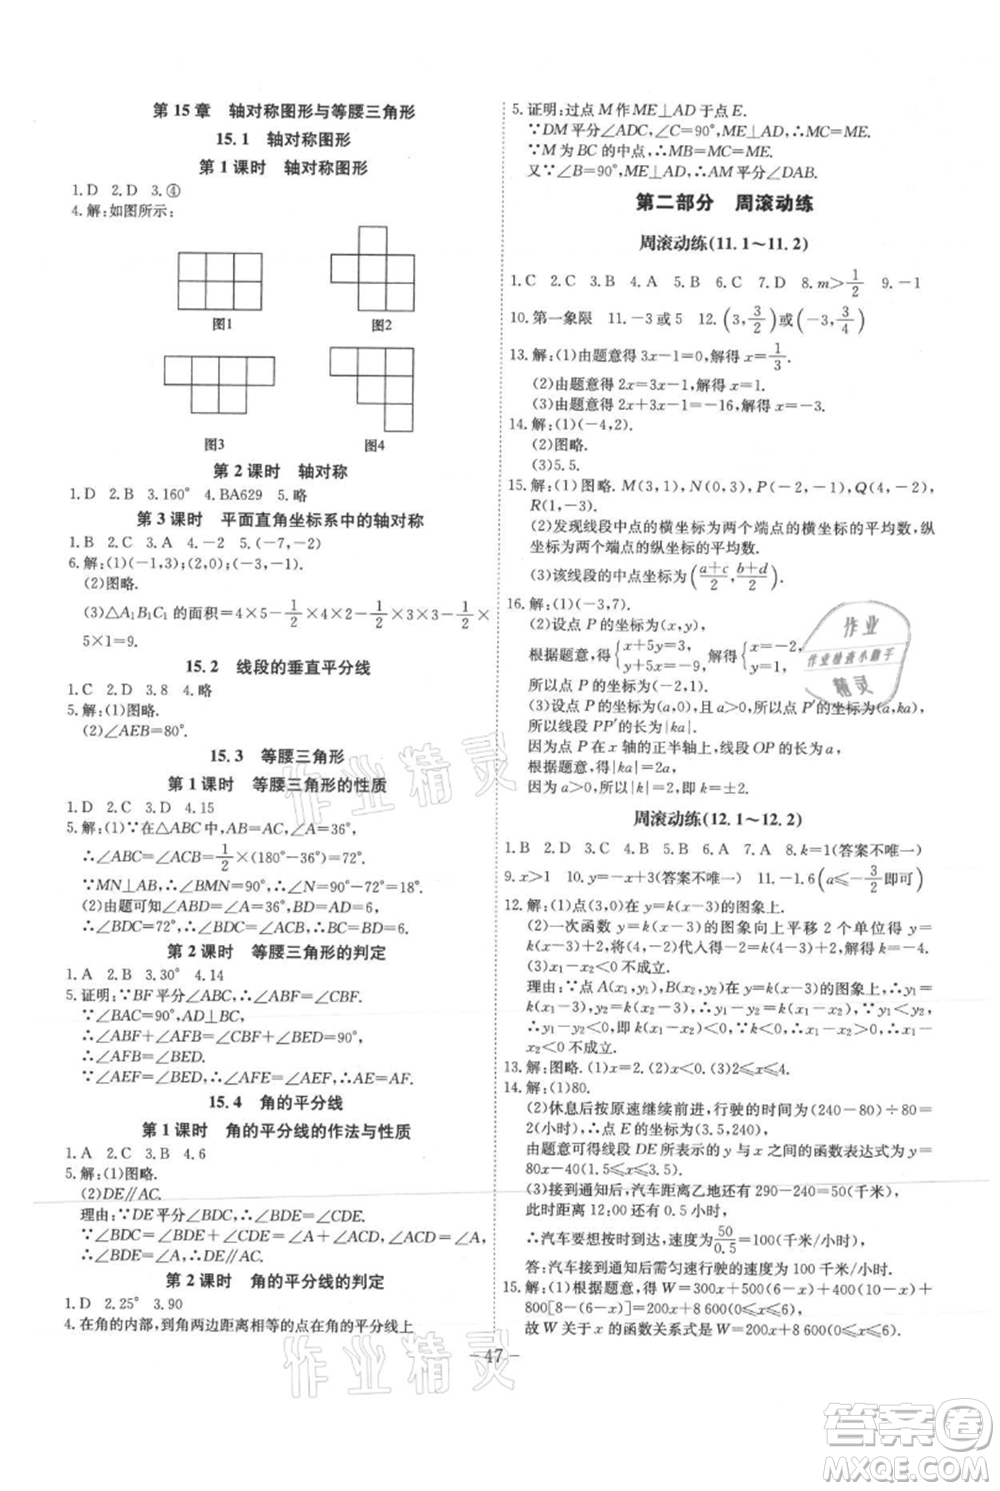 第15章 轴对称图形与等腰三角形
15.1 轴对称图形
第1课时 轴对称图形
1.D 2.D 3.④
4.解:如图所示:
图1
图2
图3
图4
第2课时 轴对称
1.D 2.B 3.160° 4.BA629 5.略
第3课时 平面直角坐标系中的轴对称
1.B 2.C 3.A 4.-2 5.(-7,-2)
6.解:(1)(-1,3);(2,0);(-3,-1).
(2)图略.
(3)△A₁B₁C₁的面积=4×5-1/2×4×2-1/2×3×3-1/2×
5×1=9.
15.2 线段的垂直平分线
1.C 2.D 3.8 4.略
5.解:(1)图略.
(2)∠AEB=80°.
15.3 等腰三角形
第1课时 等腰三角形的性质
1.D 2.D 3.C 4.15
5.解:(1)∵在△ABC中,AB=AC,∠A=36°,
∴∠ABC=∠ACB=1/2×(180°-36°)=72°.
∵MN⊥AB,∴∠BMN=90°,∴∠1=90°-72°=18°.
(2)由题可知∠ABD=∠A=36°,
∴∠BDC=72°,∴∠BDC=∠C,∴BD=BC=6.
第2课时 等腰三角形的判定
1.A 2.B 3.30° 4.14
5.证明:∵BF平分∠ABC,∴∠ABF=∠CBF.
∵∠BAC=90°,AD⊥BC,
∴∠ABF+∠AFB=∠CBF+∠BED=90°,
∴∠AFB=∠BED.
∵∠AEF=∠BED,∴∠AEF=∠AFE,∴AE=AF.
15.4 角的平分线
第1课时 角的平分线的作法与性质
1.A 2.C 3.B 4.6
5.解:(1)图略.
(2)DE∥AC.
理由:∵DE平分∠BDC,∴∠BDE=∠CDE.
∵∠BDC=∠A+∠ACD=∠BDE+∠CDE,∠ACD=∠A,
∴∠BDE=∠A,∴DE∥AC.
第2课时 角的平分线的判定
1.D 2.25° 3.90
4.在角的内部,到角两边距离相等的点在角的平分线上
5.证明:过点M作ME⊥AD于点E.
∵DM平分∠ADC,∠C=90°,ME⊥AD,∴MC=ME.
∵M为BC的中点,∴MB=MC=ME.
又∵∠B=90°,ME⊥AD,∴AM平分∠DAB.
第二部分 周滚动练
周滚动练(11.1~11.2)
1.C 2.C 3.B 4.A 5.B 6.C 7.D 8.m>1/2 9.-1
10.第一象限 11.-3或5 12.(3,3/2)或(-3,3/4)
13.解:(1)由题意得3x-1=0,解得x=1/3.
(2)由题意得2x=3x-1,解得x=1.
(3)由题意得2x+3x-1=-16,解得x=-3.
14.解:(1)(-4,2).
(2)图略.
(3)5.5.
15.解:(1)图略.M(3,1),N(0,2),P(-1,-2),Q(4,5),
R(1,-3).
(2)发现线段中点的横坐标为两个端点的横坐标的平均数,纵
坐标为两个端点的纵坐标的平均数.
(3)该线段的中点坐标为((a+c)/2,(b+d)/2).
16.解:(1)(-3,7).
(2)设点P的坐标为(x,y),
根据题意,得{x+5y=3,5x+y=-9,解得{x=-2,y=1.
所以点P的坐标为(-2,1).
(3)设点P的坐标为(a,0),且a>0,所以点P′的坐标为(a,ka),
所以线段PP′的长为|ka|.
因为点P在x轴的正半轴上,线段OP的长为a,
根据题意,有|ka|=2a.
因为a>0,所以|k|=2,即k=±2.
周滚动练(12.1~12.2)
1.B 2.D 3.D 4.C 5.B 6.A 7.A 8.k=1(答案不唯一)
9.x>1 10.y=-x+3(答案不唯一) 11.-1.6(a≤-3/2即可)
12.解:(1)点(3,0)在y=k(x-3)的图象上.
(2)一次函数y=k(x-3)的图象向上平移2个单位得y=
k(x-3)+2,将(4,-2)代入得-2=k(4-3)+2,解得k=-4.
(3)x₁-x₂<0不成立.
理由:∵点A(x₁,y₁),B(x₂,y₂)在y=k(x-3)的图象上,∴y₁=
k(x₁-3),y₂=k(x₂-3),∴y₁-y₂=k(x₁-x₂).∵y₁<y₂,
∴y₁-y₂<0,即k(x₁-x₂)<0,∵k<0,∴x₁-x₂>0,∴x₁-
x₂<0不成立.
13.解:图略.(1)x=-1.(2)x≤2.(3)-2≤x≤2.
14.解:(1)80.
(2)休息后按原速继续前行,行驶的时间为(240-80)÷80=
2(小时),∴点E的坐标为(3.5,240),
由题意可得线段DE所表示的y与x之间的函数表达式为y=
80x-40(1.5≤x≤3.5).
(3)接到通知后,汽车距离乙地还有290-240=50(千米),
此时距离12:00还有0.5小时,
∴汽车要想按时到达,速度为50/0.5=100(千米/小时).
答:汽车接到通知后需匀速行驶的速度为100千米/小时.
15.解:(1)根据题意,得W=300x+500(6-x)+400(10-x)+
800[8-(6-x)]=200x+8 600(0≤x≤6).
故W关于x的函数关系式是W=200x+8 600(0≤x≤6).
-47-
作业
作业检查小助手
精灵
作业精灵
作业精灵
答案卷
MXQE.COM